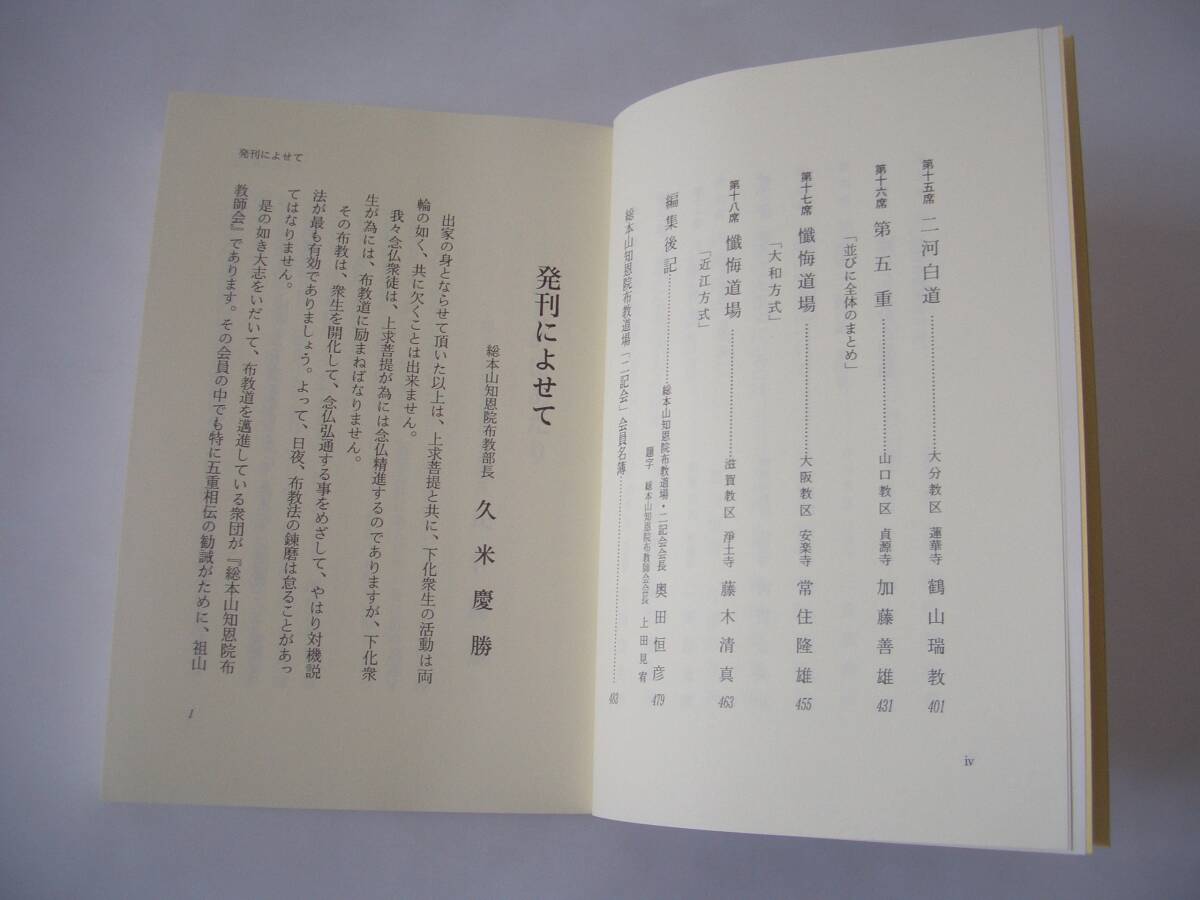 第十五席 二河白道……………大分教区 蓮華寺 鶴山瑞教 401
第十六席 第五重……………山口教区 貞源寺 加藤善雄 431
「並びに全体のまとめ」
第十七席 懺悔道場……………大阪教区 安楽寺 常住隆雄 455
「大和方式」
第十八席 懺悔道場……………滋賀教区 浄土寺 藤木清真 463
「近江方式」
編集後記……………総本山知恩院布教道場・二記会会長 奥田恒彦 479
題字 総本山知恩院布教師会会長 上田見宥
総本山知恩院布教道場「二記会」会員名簿……………483
iv
発刊によせて
発刊によせて
総本山知恩院布教部長 久米慶勝
出家の身とならせて頂いた以上は、上求菩提と共に、下化衆生の活動は両
輪の如く、共に欠くことは出来ません。
我々念仏衆徒は、上求菩提が為には念仏精進するのでありますが、下化衆
生が為には、布教道に励まねばなりません。
その布教は、衆生を開化して、念仏弘通する事をめざして、やはり対機説
法が最も有効でありましょう。よって、日夜、布教法の錬磨は怠ることがあっ
てはなりません。
是の如き大志をいだいて、布教道を邁進している衆団が『総本山知恩院布
教師会』であります。その会員の中でも特に五重相伝の勧誡がために、祖山
1